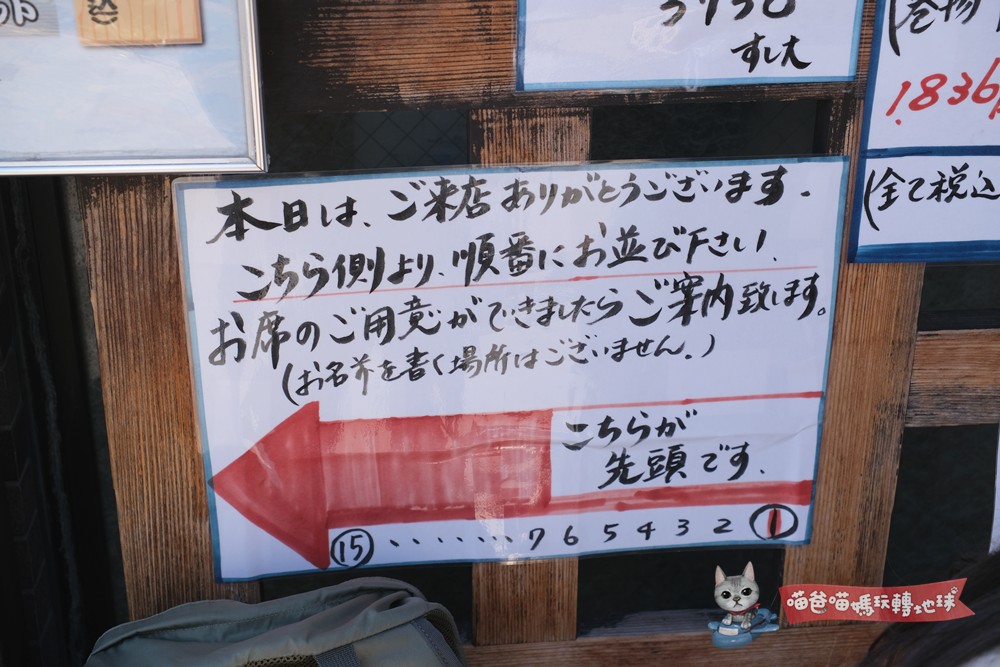 すし大
1.836
(全て税込
本日は、ご来店ありがとうございます。
こちら側より、順番にお並び下さい。
お席のご用意ができましたらご案内致します。
(お名前を書く場所はございません。)
こちらが
先頭です。
⑮ ・・・・・・・ 7 6 5 4 3 2 ①
喵爸喵媽玩轉地球